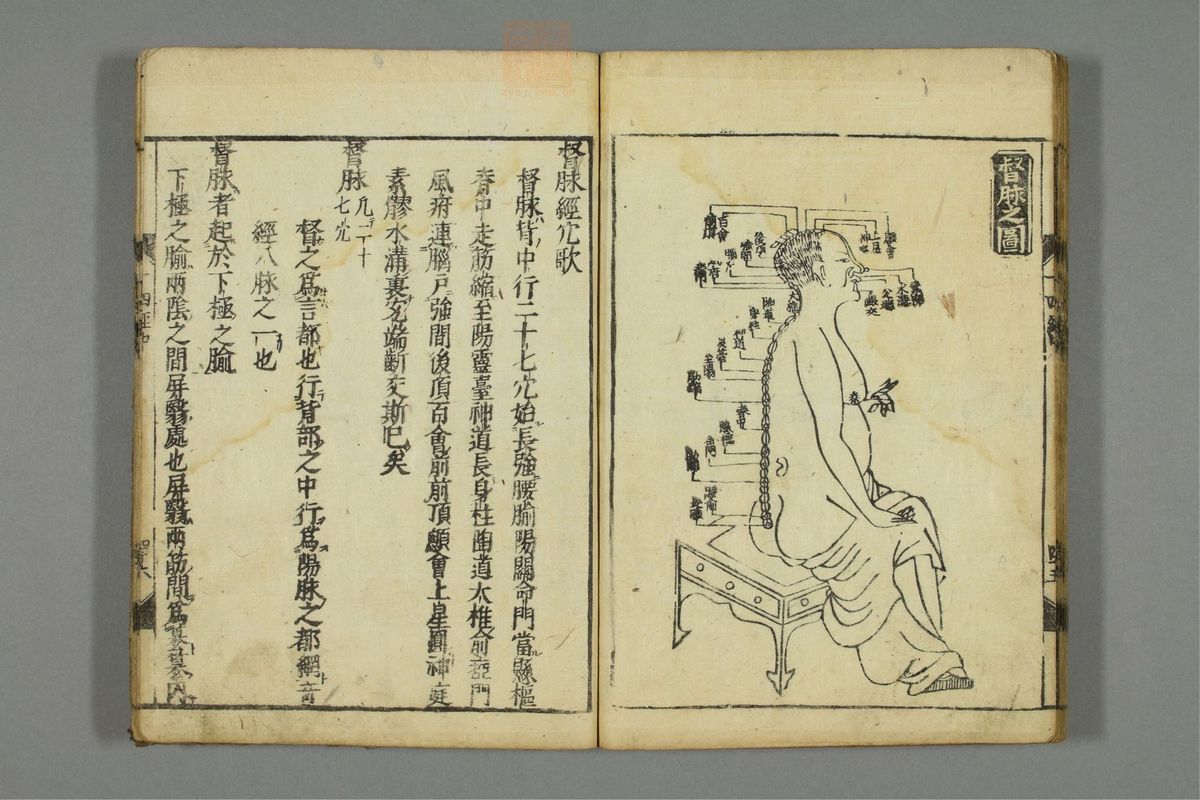 督脉之圖
百會
後頂
強間
上星
神庭
水溝
兌端
齗交
大椎
陶道
身柱
神道
靈臺
至陽
筋縮
脊中
懸樞
命門
腰俞
長強
督脉經穴歌
督脉背中行二十七穴始長強腰腧陽關命門當懸樞
脊中走筋縮至陽靈臺神道長身柱陶道大椎俞瘂門
風府連腦戶強間後頂百會前前頂顖會上星圓神庭
素髎水溝裏兌端齗交斯已矣
督脉凡二十七穴
督之爲言都也行背部之中行爲陽脉之都綱奇
經八脉之一也
督脉者起於下極之腧
下極之腧兩陰之間屏翳處也屏翳兩筋間爲篡篡內
十四經中